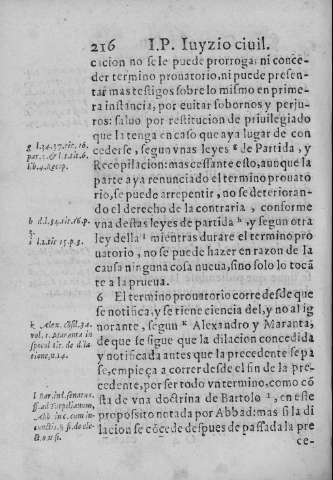 216 I.P. Iuyzio ciuil.
cacion no se le puede prorroga: ni conce-
der termino prouatorio, ni puede presen-
tar mas testigos sobre lo mismo en prime-
ra instancia, por euitar sobornos y perju-
ros: saluo por restitucion de priuilegiado
que la tenga en caso que aya lugar de con-
cederse, segun vnas leyes g de Partida, y
Recopilacion: mas cessante esto, aunque la
parte aya renunciado el termino prouato
rio, se puede arrepentir, no se deterioran-
do el derecho de la contraria, conforme
vna destas leyes de partida h, y segun otra
ley della i mientras durare el termino pro
uatorio, no se puede hazer en razon de la
causa ninguna cosa nueua, sino solo lo tocã
te a la prueua.
6 El termino prouatorio corre desde que
se notifica, y se tiene ciencia del, y no al ig
norante, segun k Alexandro y Maranta,
de que se sigue que la dilacion concedida
y notificada antes que la precedente se pa
se, empieça a correr desde el fin de la pre-
cedente, por ser todo vn termino, como cõ
sta de vna doctrina de Bartolo l, en este
proposito notada por Abbad: mas si la di
lacion se cõcede despues de passada la pre
ce-
g l.34.37.tit.16.
par.3.& l.1.tit.6.
lib.4. Recop.
h d.l.34.tit.16.p.
3.
i l.1.tit 15.p.3.
k Alex. Cõsil.34.
vol. 1. Maranta in
specul tit. de dila
tione, n.14.
l Bar. in l. senatus.
ff. ad Turpilianum,
Abb. in c. cum in